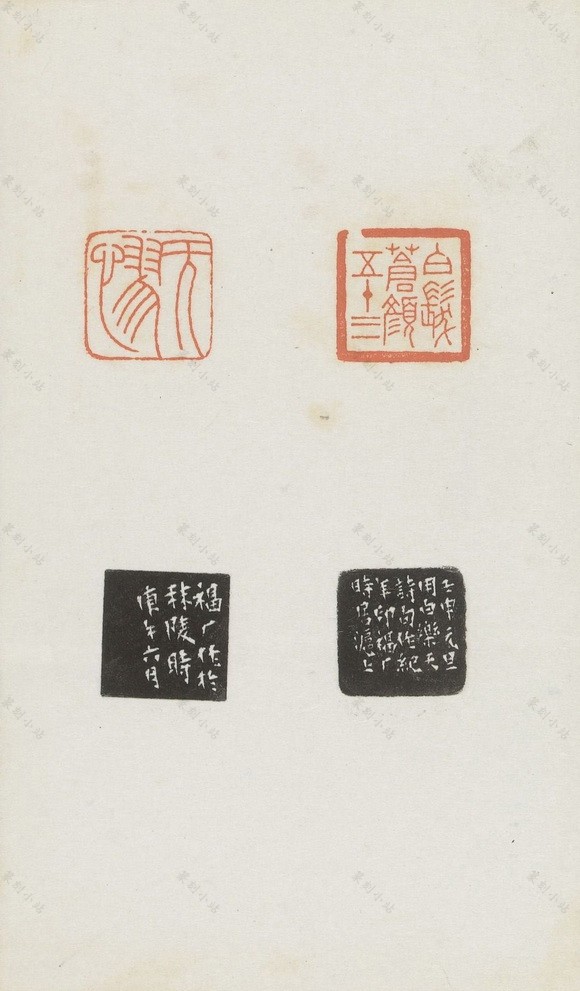 白髮
蒼顏
五十三
福厂作於
秣陵時
庚午六月
壬申元旦
用白樂天
詩句作紀
年印福厂
時寓滬上
篆刻小站